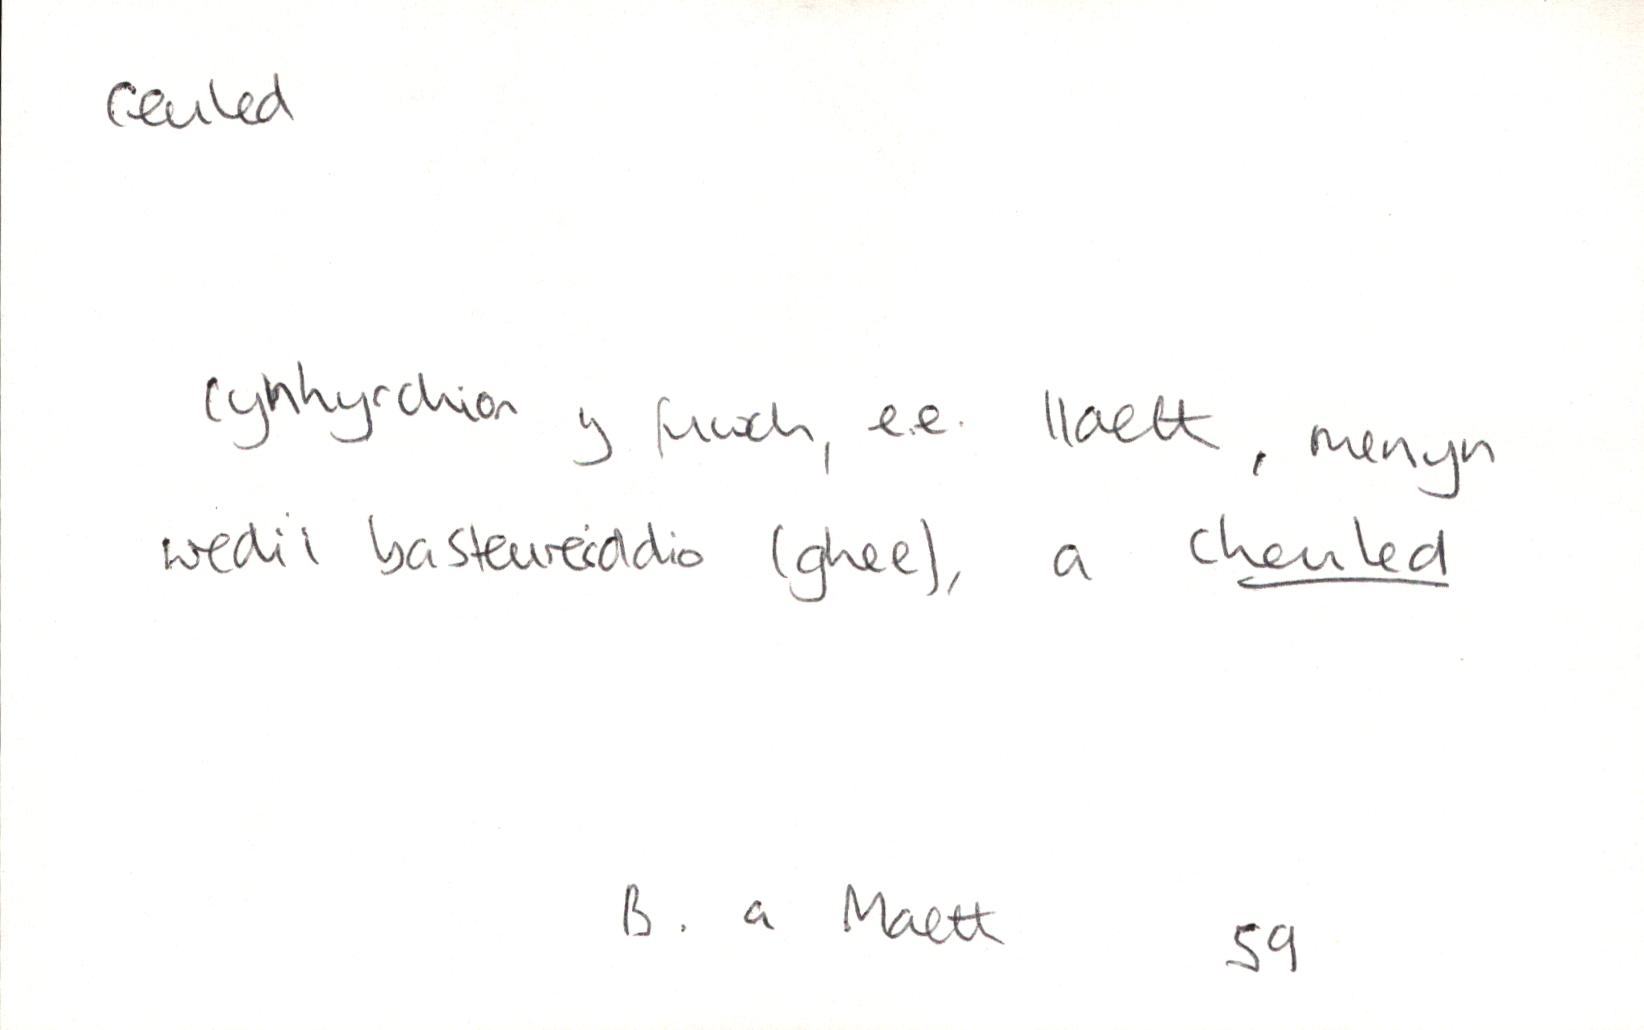 ceuled
cynhyrchion y fuwch, e.e. llaeth, menyn
wedi'i basteureiddio (ghee), a cheuled
B. a Maeth 59